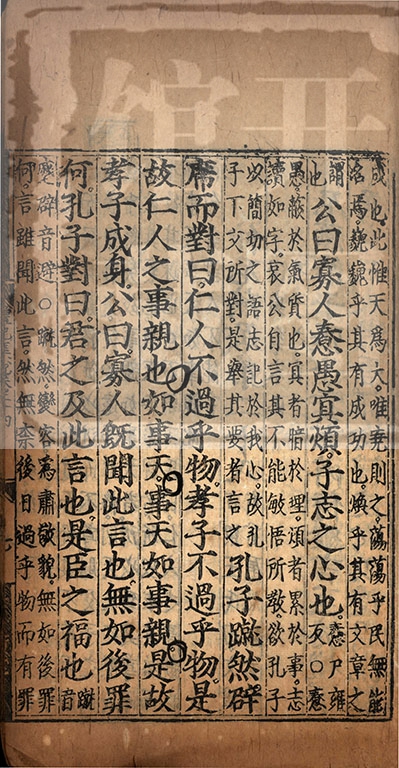 成也此惟天爲大唯堯則之蕩蕩乎民無能
名焉巍巍乎其有成功也煥乎其有文章之
謂也公曰寡人憃愚冥煩子志之心也憃尸雍反○憃
愚蔽於氣質也冥者暗於理煩者累於事志
讀如字哀公自言其不能敏悟所敎欲孔子
以簡切之語志記於我心故孔
子下文所對是舉其要者言之孔子蹴然辟
席而對曰仁人不過乎物孝子不過乎物是
故仁人之事親也如事天事天如事親是故
孝子成身公曰寡人旣聞此言也無如後罪
何孔子對曰君之及此言也是臣之福也蹴音
辟音避○蹴然變容爲肅敬貌無如後罪
何言雖聞此言然無柰後日過乎物而有罪